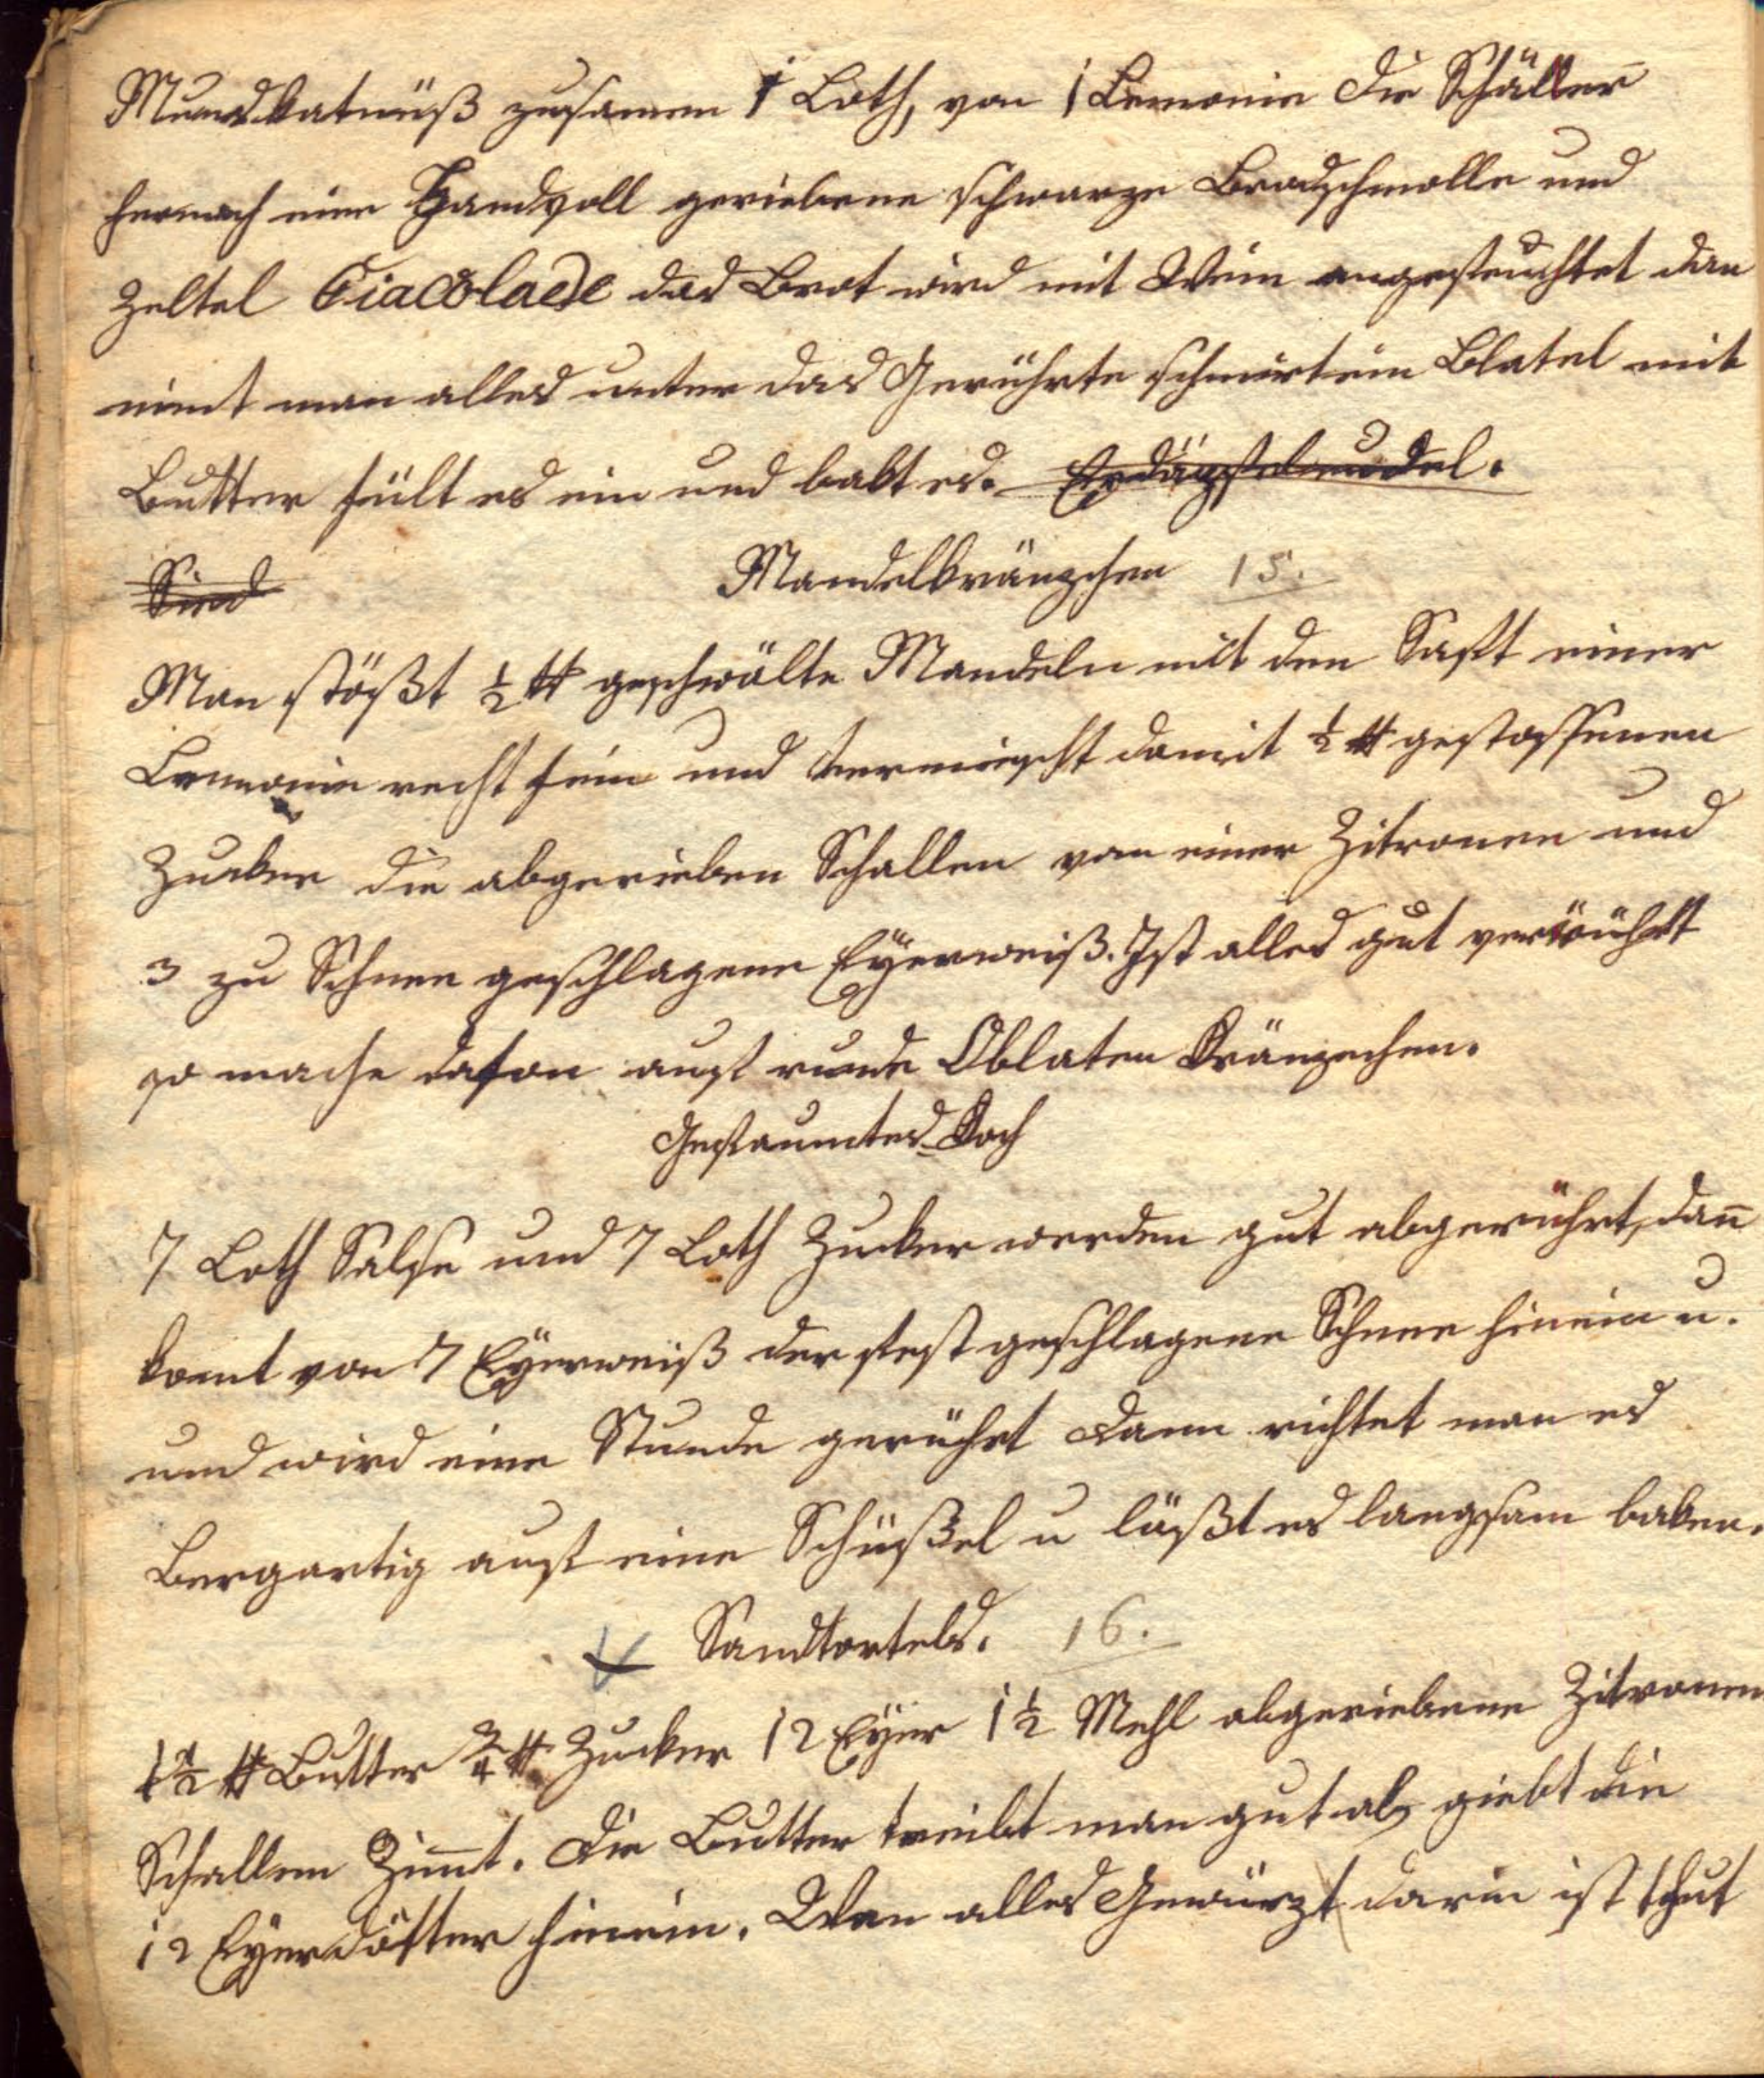 Mundkatnüß zusamen 1 Loth, von 1 Lemonie die Schäller
hernach eine Handvoll geriebene schwarze Brodschmolle und
Zeltel Ciacolaede das Brot wird mit Wein angefeuchtet dan
nimt man alles unter das Gerührte schmirt ein Blatel mit
Butter fült es ein und bakt es. Erdäpfelnudel.
Sind
Mandelkränzchen 15.
Man stößt ½ ℔ geschwälte Mandeln mit den Saft einer
Lemonie recht fein und vermischt damit ½ ℔ gestossenen
Zucker die abgerieben Schallen von einer Zitronen und
3 zu Schnee geschlagene Eyerweiß. Ist alles gut verrührt
so mache dafon auf runde Oblaten Kränzchen.
Gefaumtes Koch
7 Loth Salse und 7 Loth Zucker werden gut abgerührt, dan̄
komt von 7 Eyerweiß der fest geschlagene Schnee hinein u.
und wird eine Stunde gerührt dann richtet man es
Bergartig auf eine Schüßel u läßt es langsam baken.
Sandtortels. 16.
1½ ℔ Butter ¾ ℔ Zucker 12 Eyer 1½ Mehl abgeriebene Zitronen
Schallem Zim̄t. Die Butter treibt man gut ab giebt die
12 Eyerdötter hinein. Wen alles Gewürzt darin ist thut